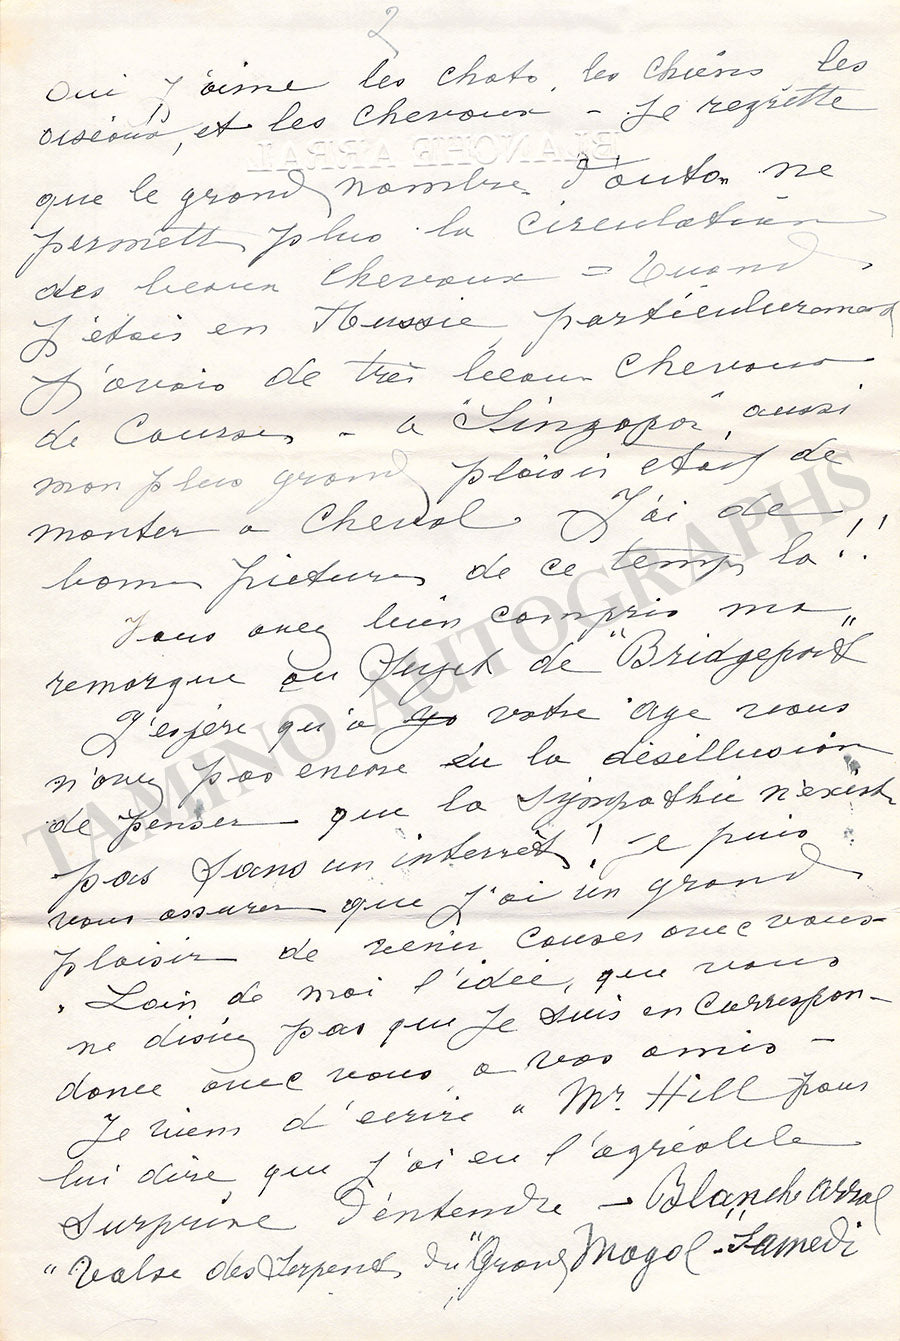 2
Oui j'aime les chats, les chiens les
oiseaux, et les chevaux - Je regrette
BLANCHE ARRAL
que le grand nombre d'autos ne
permett plus la circulation
des beaux chevaux = Quand
J'étais en Russie, particulièrement
J'avais de très beaux chevaux
de Courses - a "Singapor" aussi
mon plus grand plaisir etait de
monter a cheval - J'ai de
bonnes pictures de ce temps la!!
Vous avez bien compris ma
remarque au Sujet de "Bridgeport"
J'espère qu'a votre age vous
n'avez pas encore eu la désillusion
de penser que la Sympathie n'existe
pas Sans un interrêt! Je puis
vous assurer que J'ai un grand
plaisir de venir causer avec vous-
Loin de moi l'idée, que vous
ne disiez pas que Je suis en Correspon-
dance avec vous, a vos amis -
Je viens d'ecrire a Mr. Hill pour
lui dire que j'ai eu l'agréable
Surprise d'entendre - Blanche Arral
"Valse des Serpents du "Grand Mogol" - Samedi
TAMINO AUTOGRAPHS